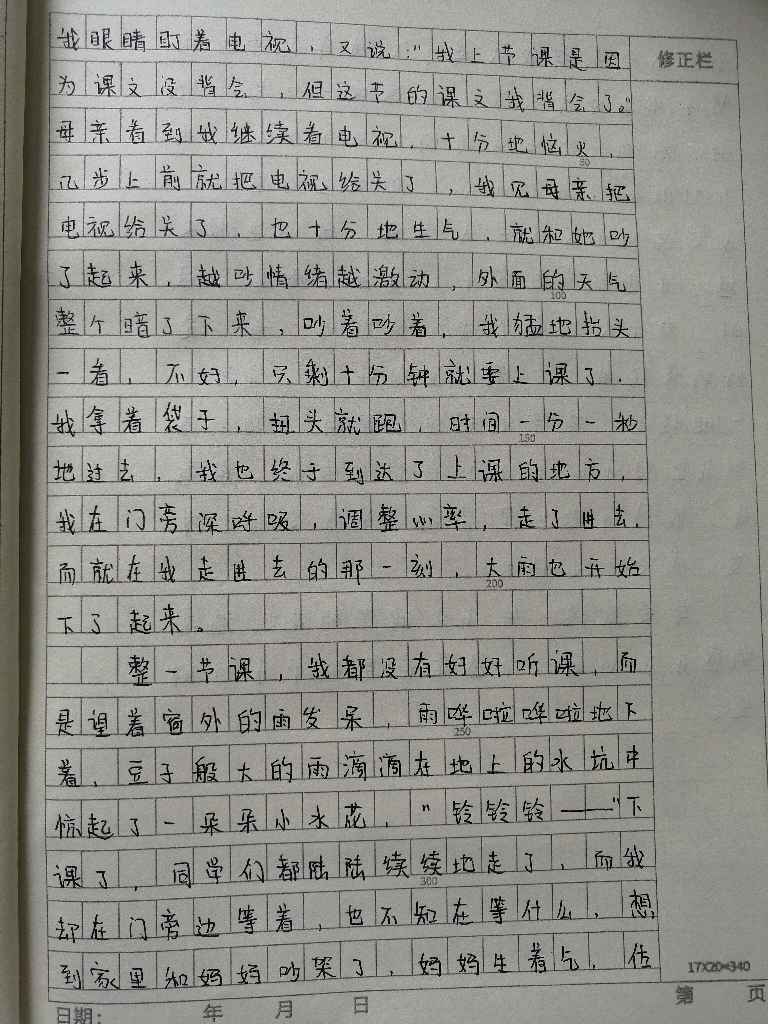 我眼睛盯着电视，又说："我上节课是因
修正栏
为课文没背会，但这节的课文我背会了。"
母亲看到我继续看电视，十分地恼火，
50
几步上前就把电视给关了，我见母亲把
电视给关了，也十分地生气，就和她吵
了起来，越吵情绪越激动，外面的天气
100
整个暗了下来，吵着吵着，我猛地抬头
一看，不好，只剩十分钟就要上课了，
我拿着袋子，扭头就跑，时间一分一秒
150
地过去，我也终于到达了上课的地方，
我在门旁深呼吸，调整心率，走了进去，
而就在我走进去的那一刻，大雨也开始
200
下了起来。
整一节课，我都没有好好听课，而
是望着窗外的雨发呆，雨哗啦哗啦地下
250
着，豆子般大的雨滴滴在地上的水坑中
惊起了一朵朵小水花，"铃铃铃——"下
课了，同学们都陆陆续续地走了，而我
300
却在门旁边等着，也不知在等什么，想
到家里和妈妈吵架了，妈妈生着气，估
17X20=340
日期： 年 月 日
第 页